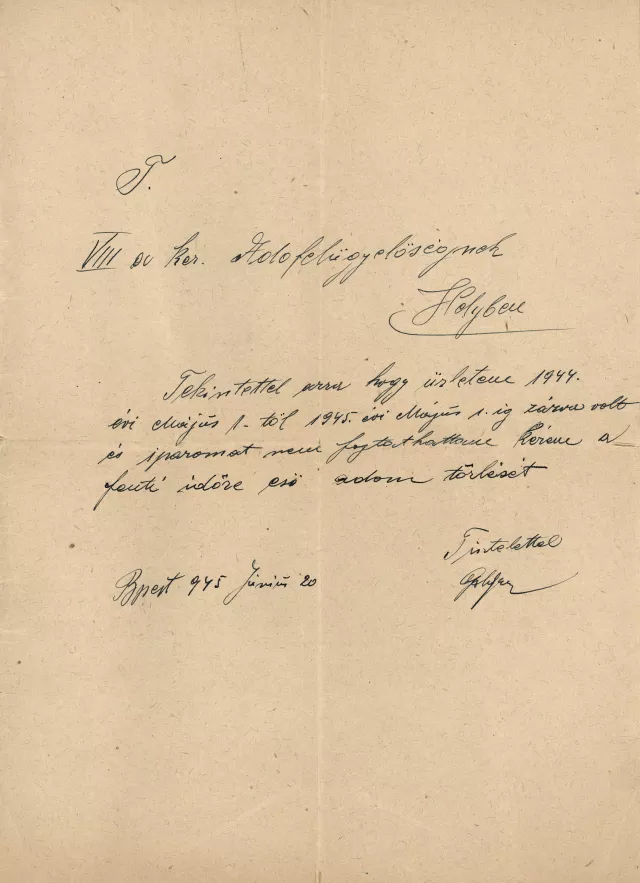 T.
VIII ov ker. Adofelügyelőségnek
Helyben
Tekintettel arra hogy üzletem 1944.
évi Május 1-től 1945. évi Május 1.ig zárva volt
és iparomat nem folytathattam Kérem a
fenti időre eső adom törlését
Tisztelettel
Bpest 945 Június 20